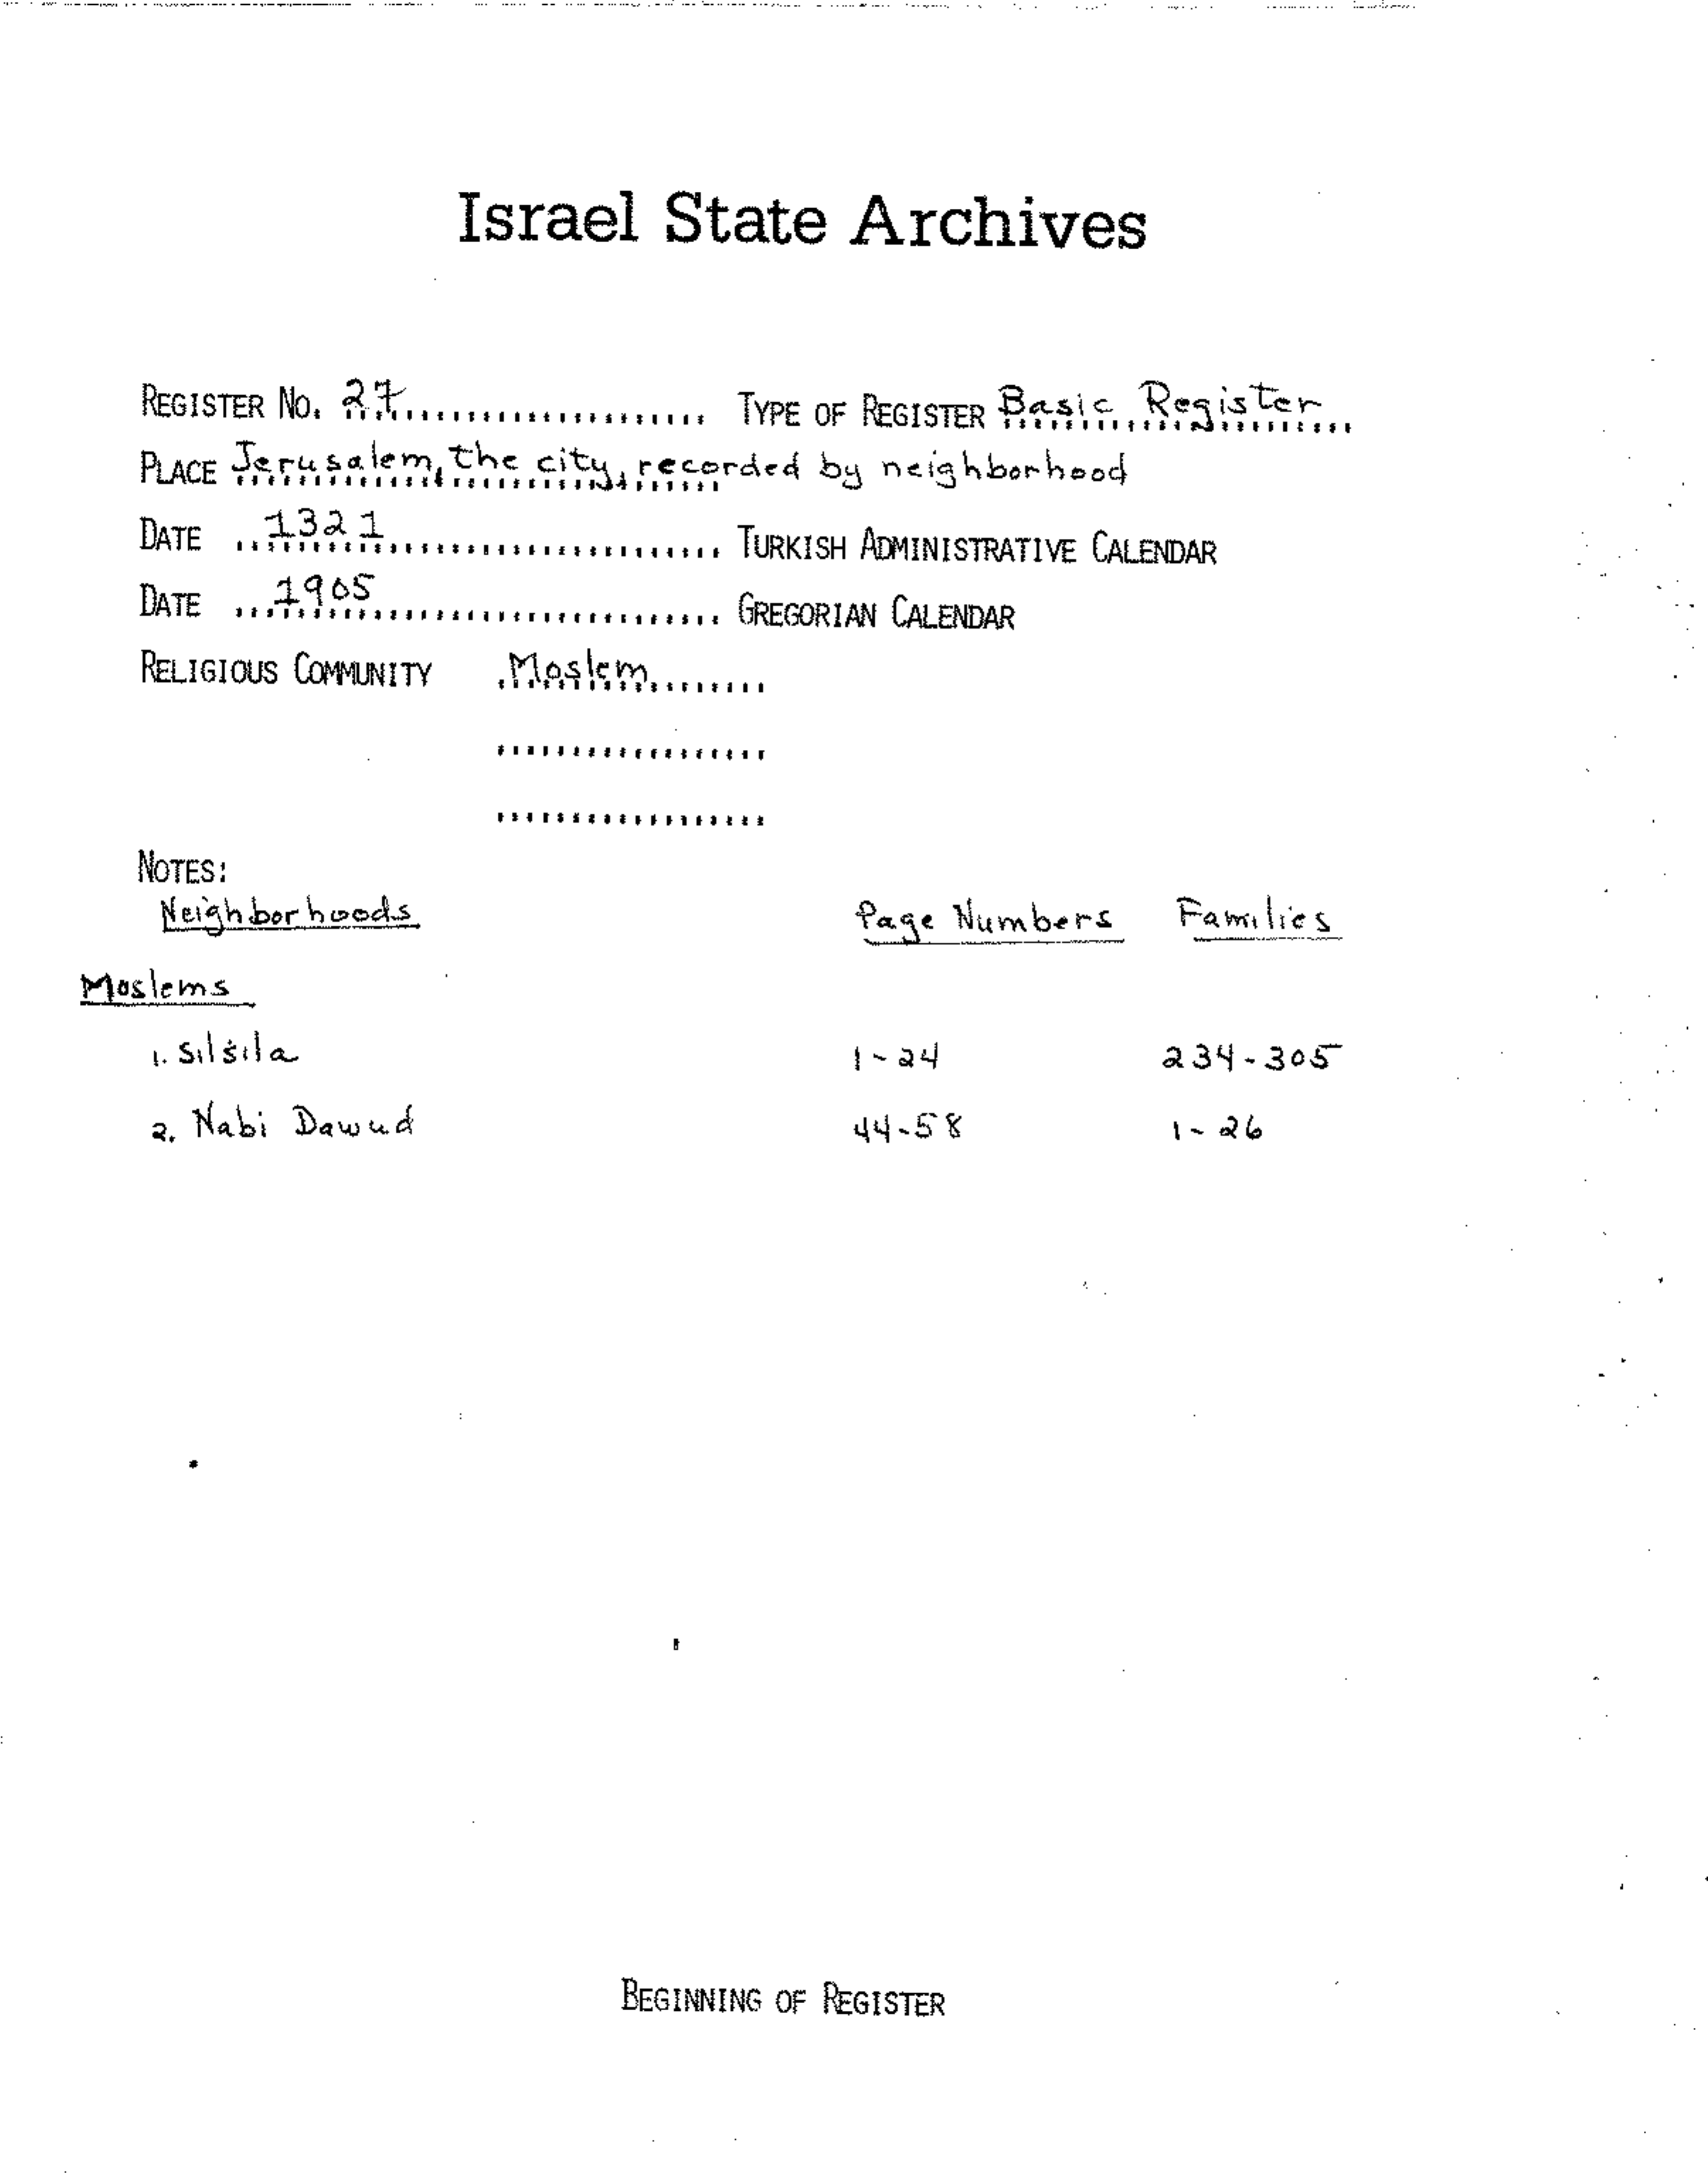 Israel State Archives
REGISTER NO. 27 TYPE OF REGISTER Basic Register
PLACE Jerusalem, the city, recorded by neighborhood
DATE 1321 TURKISH ADMINISTRATIVE CALENDAR
DATE 1905 GREGORIAN CALENDAR
RELIGIOUS COMMUNITY Moslem
NOTES:
Neighborhoods Page Numbers Families
Moslems
1. Silsila 1-24 234-305
2. Nabi Dawud 44-58 1-26
BEGINNING OF REGISTER